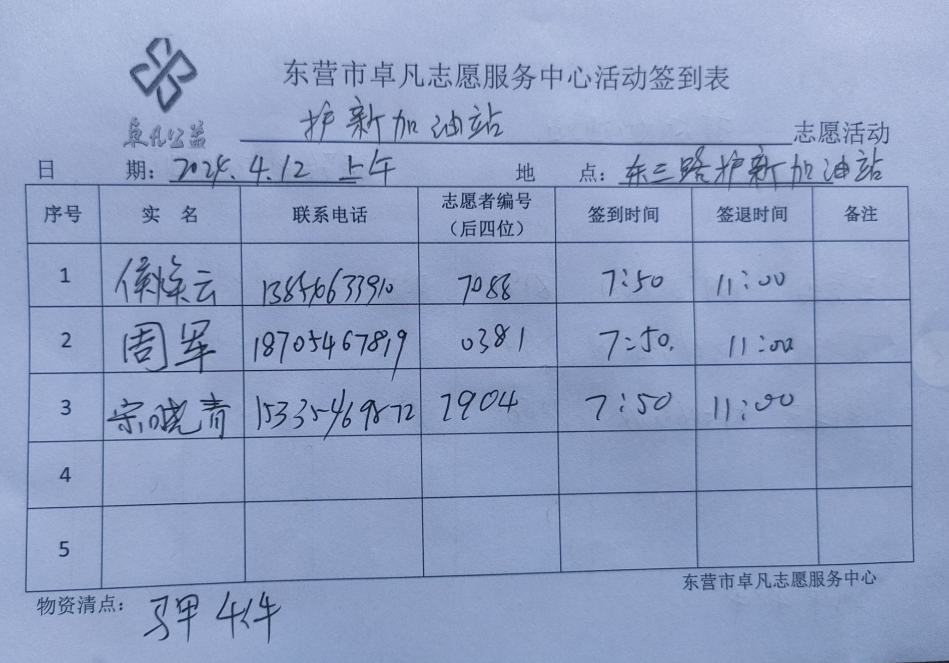 东营市卓凡志愿服务中心活动签到表
卓凡公益 护新加油站 志愿活动
日期: 2024.4.12 上午 地点: 东三路护新加油站
序号 实名 联系电话 志愿者编号(后四位) 签到时间 签退时间 备注
1 侯焕云 13854633910 7088 7:50 11:00
2 周军 18705467819 0381 7:50. 11:00
3 宋晓青 15335469872 7904 7:50 11:00
4
5
东营市卓凡志愿服务中心
物资清点: 马甲 4件